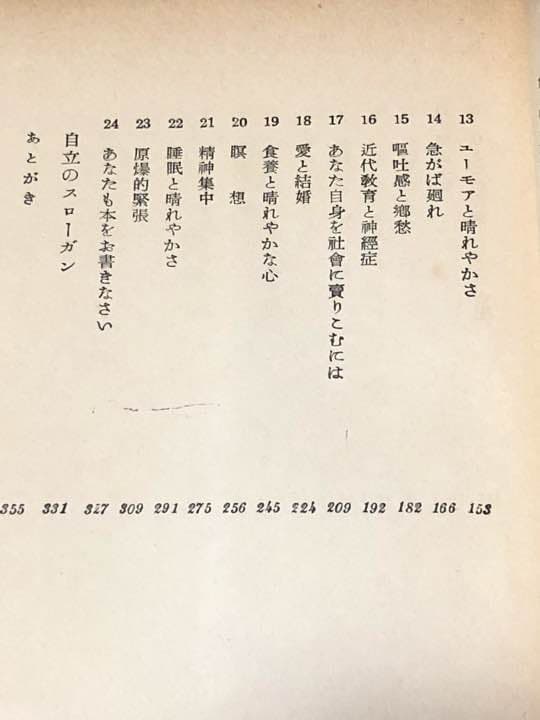 13 ユーモアと晴れやかさ 153
14 急がば廻れ 166
15 嘔吐感と郷愁 182
16 近代教育と神經症 192
17 あなた自身を社會に賣りこむには 209
18 愛と結婚 224
19 食養と晴れやかな心 245
20 瞑想 256
21 精神集中 275
22 睡眠と晴れやかさ 291
23 原爆的緊張 309
24 あなたも本をお書きなさい 327
自立のスローガン 331
あとがき 355